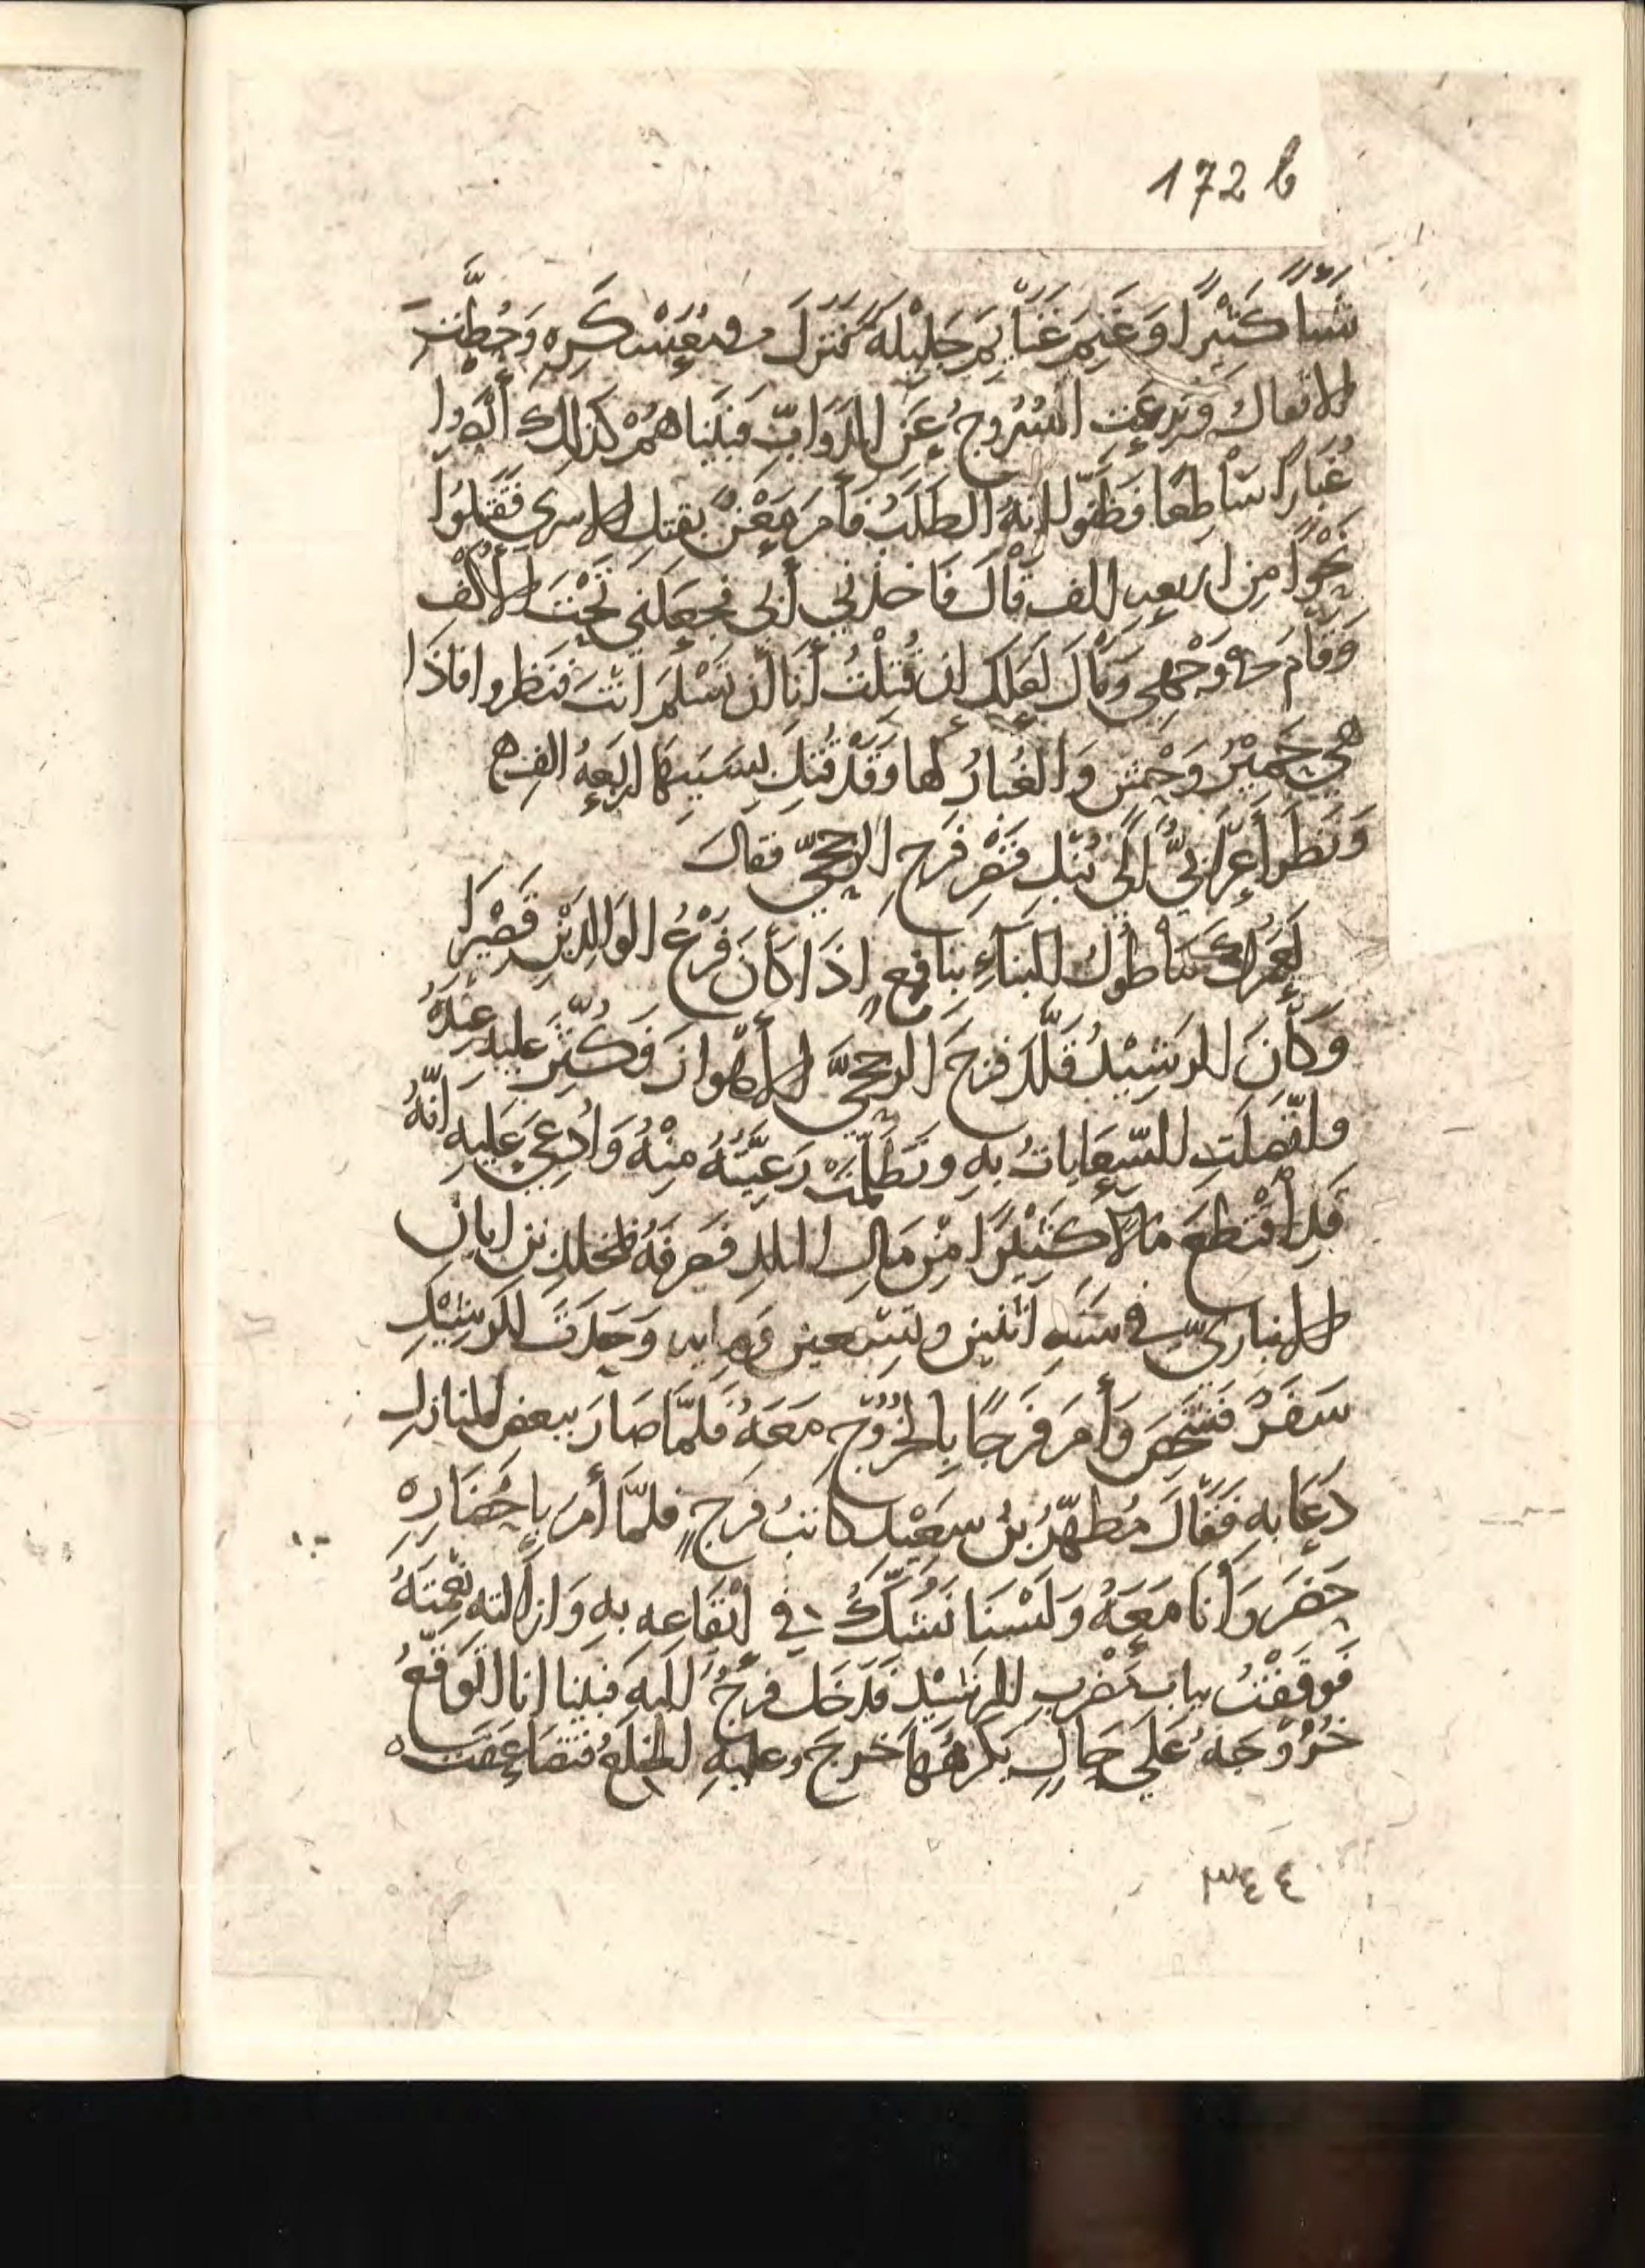 172 b
شَيْئًا كَثِيْرًا وَغَنِمَ غَنَائِمَ جَلِيْلَةً فَنَزَلَ في مُعَسْكَرِهِ وَحُطَّتْ
الاثقالُ وَنُزِعَت السُّرُوجُ عَنِ الدَّوَابِّ فَبَيْنَا هُمْ كَذَلِكَ أبْصَرُوا
غُبَارًا سَاطِعًا فَظَنُّوا انهُ الطَلَبُ فَأَمَرَ مَعْنٌ بقتل الاسرى فَقُتِلُوا
نَحْوًا مِن اربعه الف قَالَ فَاخذني أَبي فجعلني تَحْتَ الأَكُفِّ
وَقَامَ في وَجْهِي وَقَالَ لَعَلَّكَ إن قُتِلْتُ أَنَا أن تَسْلَمَ انْتَ فَنَظَروا فاذَا
هي حَمِيْرُ وَحْشٍ وَالغُبَارُ لها وَقَدْ قُتِلَ بِسَبَبِهَا اربَعةُ الف ه
وَنَظَرَ أعرَابيٌّ إلى نُبْلِ قَصْرِ فَرَجِ الرخجيّ فقال
لَعَمْرُكَ مَا طُولُ البنَاءِ بِنَافِعٍ إذَا كَانَ فَرْعُ الوَالِدَيْنِ قَصِيْرَا
وَكَانَ الرَشِيْدُ قَلَّدَ فرَجَ الرخجيَّ الأهْوازَ فَكُثِّرَ عليه عِنْدَهُ
واتَّصَلَتِ السّعَايَاتُ بهِ وتَظَلَّمَتْ رَعِيَّتُهُ مِنْهُ وَادُّعِيَ عَلَيهِ انَّهُ
قَدِ اقْتَطَعَ مَالًا كَثِيْرًا مِنْ مَالِ البلدِ فَصَرفَهُ بمخلدِ بن ابانٍ
الانباريّ في سَنَةِ اثنين وتِسْعين ومايه وَحَدَثَ للرَشِيْدِ
سَفَرٌ فَشَخَصَ وَأمَرَ فَرَجًا بِالخُرُوجِ مَعَهُ فَلَمَّا صَارَ ببعض المنازل
دَعَا بهِ فَقَالَ مُطَهِّرُ بنُ سَعِيْدٍ كاتبُ فَرَجٍ فلمَّا أمَرَ بِاحْضَارِهِ
حَضَرَ وَأنَا مَعَهُ وَلَسْنَا نَشُكُّ في ايْقَاعِهِ بهِ وَازالته نِعْمَتَهُ
فَوقَفْتُ بِبابِ مَضْرِبِ الرشِيْدِ فدَخَلَ فَرَجٌ اليهِ فَبَيْنا انا اتَوَقَّعُ
خُرُوجَهُ عَلَى حَالٍ يَكرَهُهَا خَرجَ وعليهِ الخِلَعُ فَتَضَاعَفَت
٣٤٤